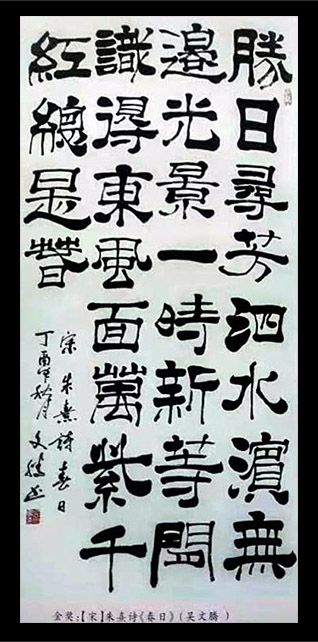 勝日尋芳泗水濱無
邊光景一時新等閒
識得東風面萬紫千
紅總是春
宋朱熹詩春日
丁酉年秋月文腾书
金奖:【宋】朱熹诗《春日》(吴文腾 )